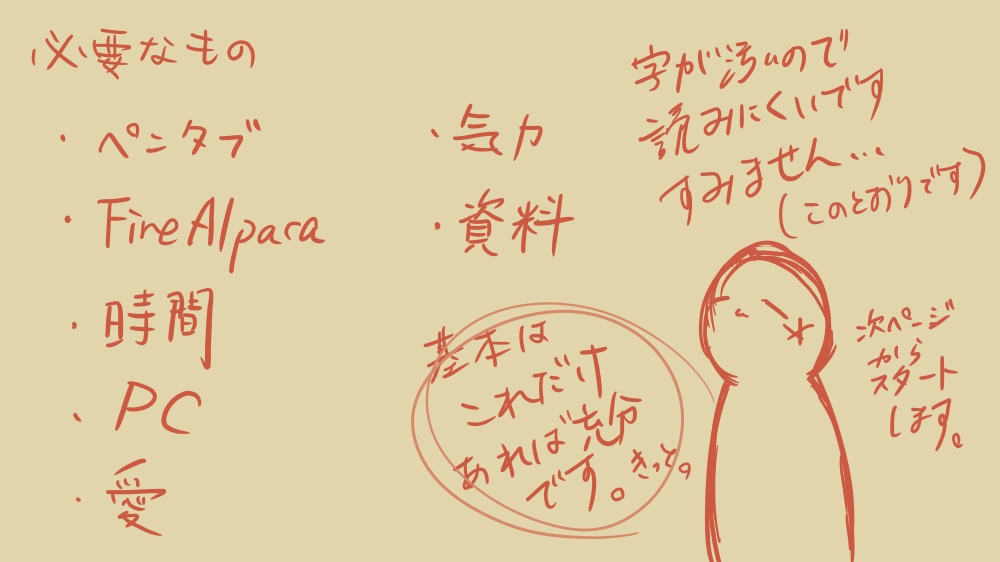 必要なもの
・ペンタブ
・FireAlpaca
・時間
・PC
・愛
・気力
・資料
基本は
これだけ
あれば充分
です。きっと。
字が汚いので
読みにくいです
すみません…
(このとおりです)
次ページ
から
スタート
します。